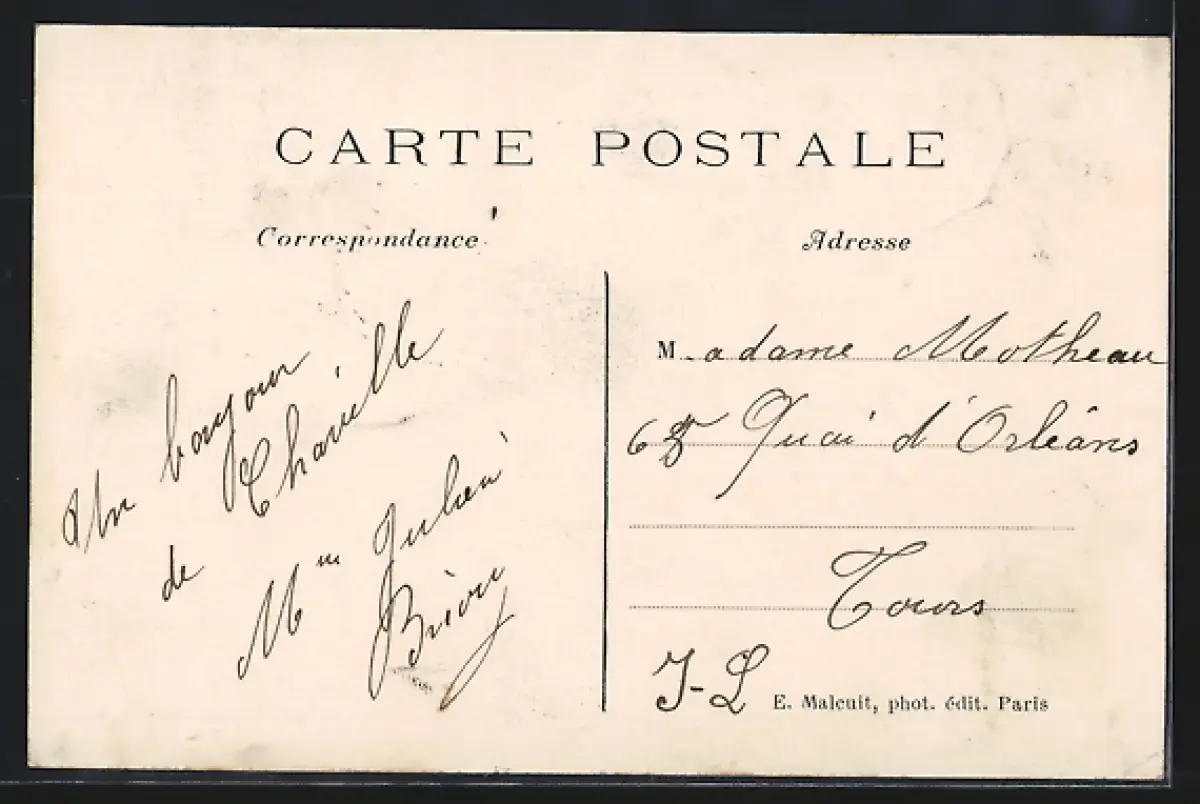 CARTE POSTALE
Correspondance
Un bonjour
de Chaville
Mme Julien
Adresse
Madame Motheau
Quai d'Orléans
Tours
I-L
E. Malcuit, phot. édit. Paris